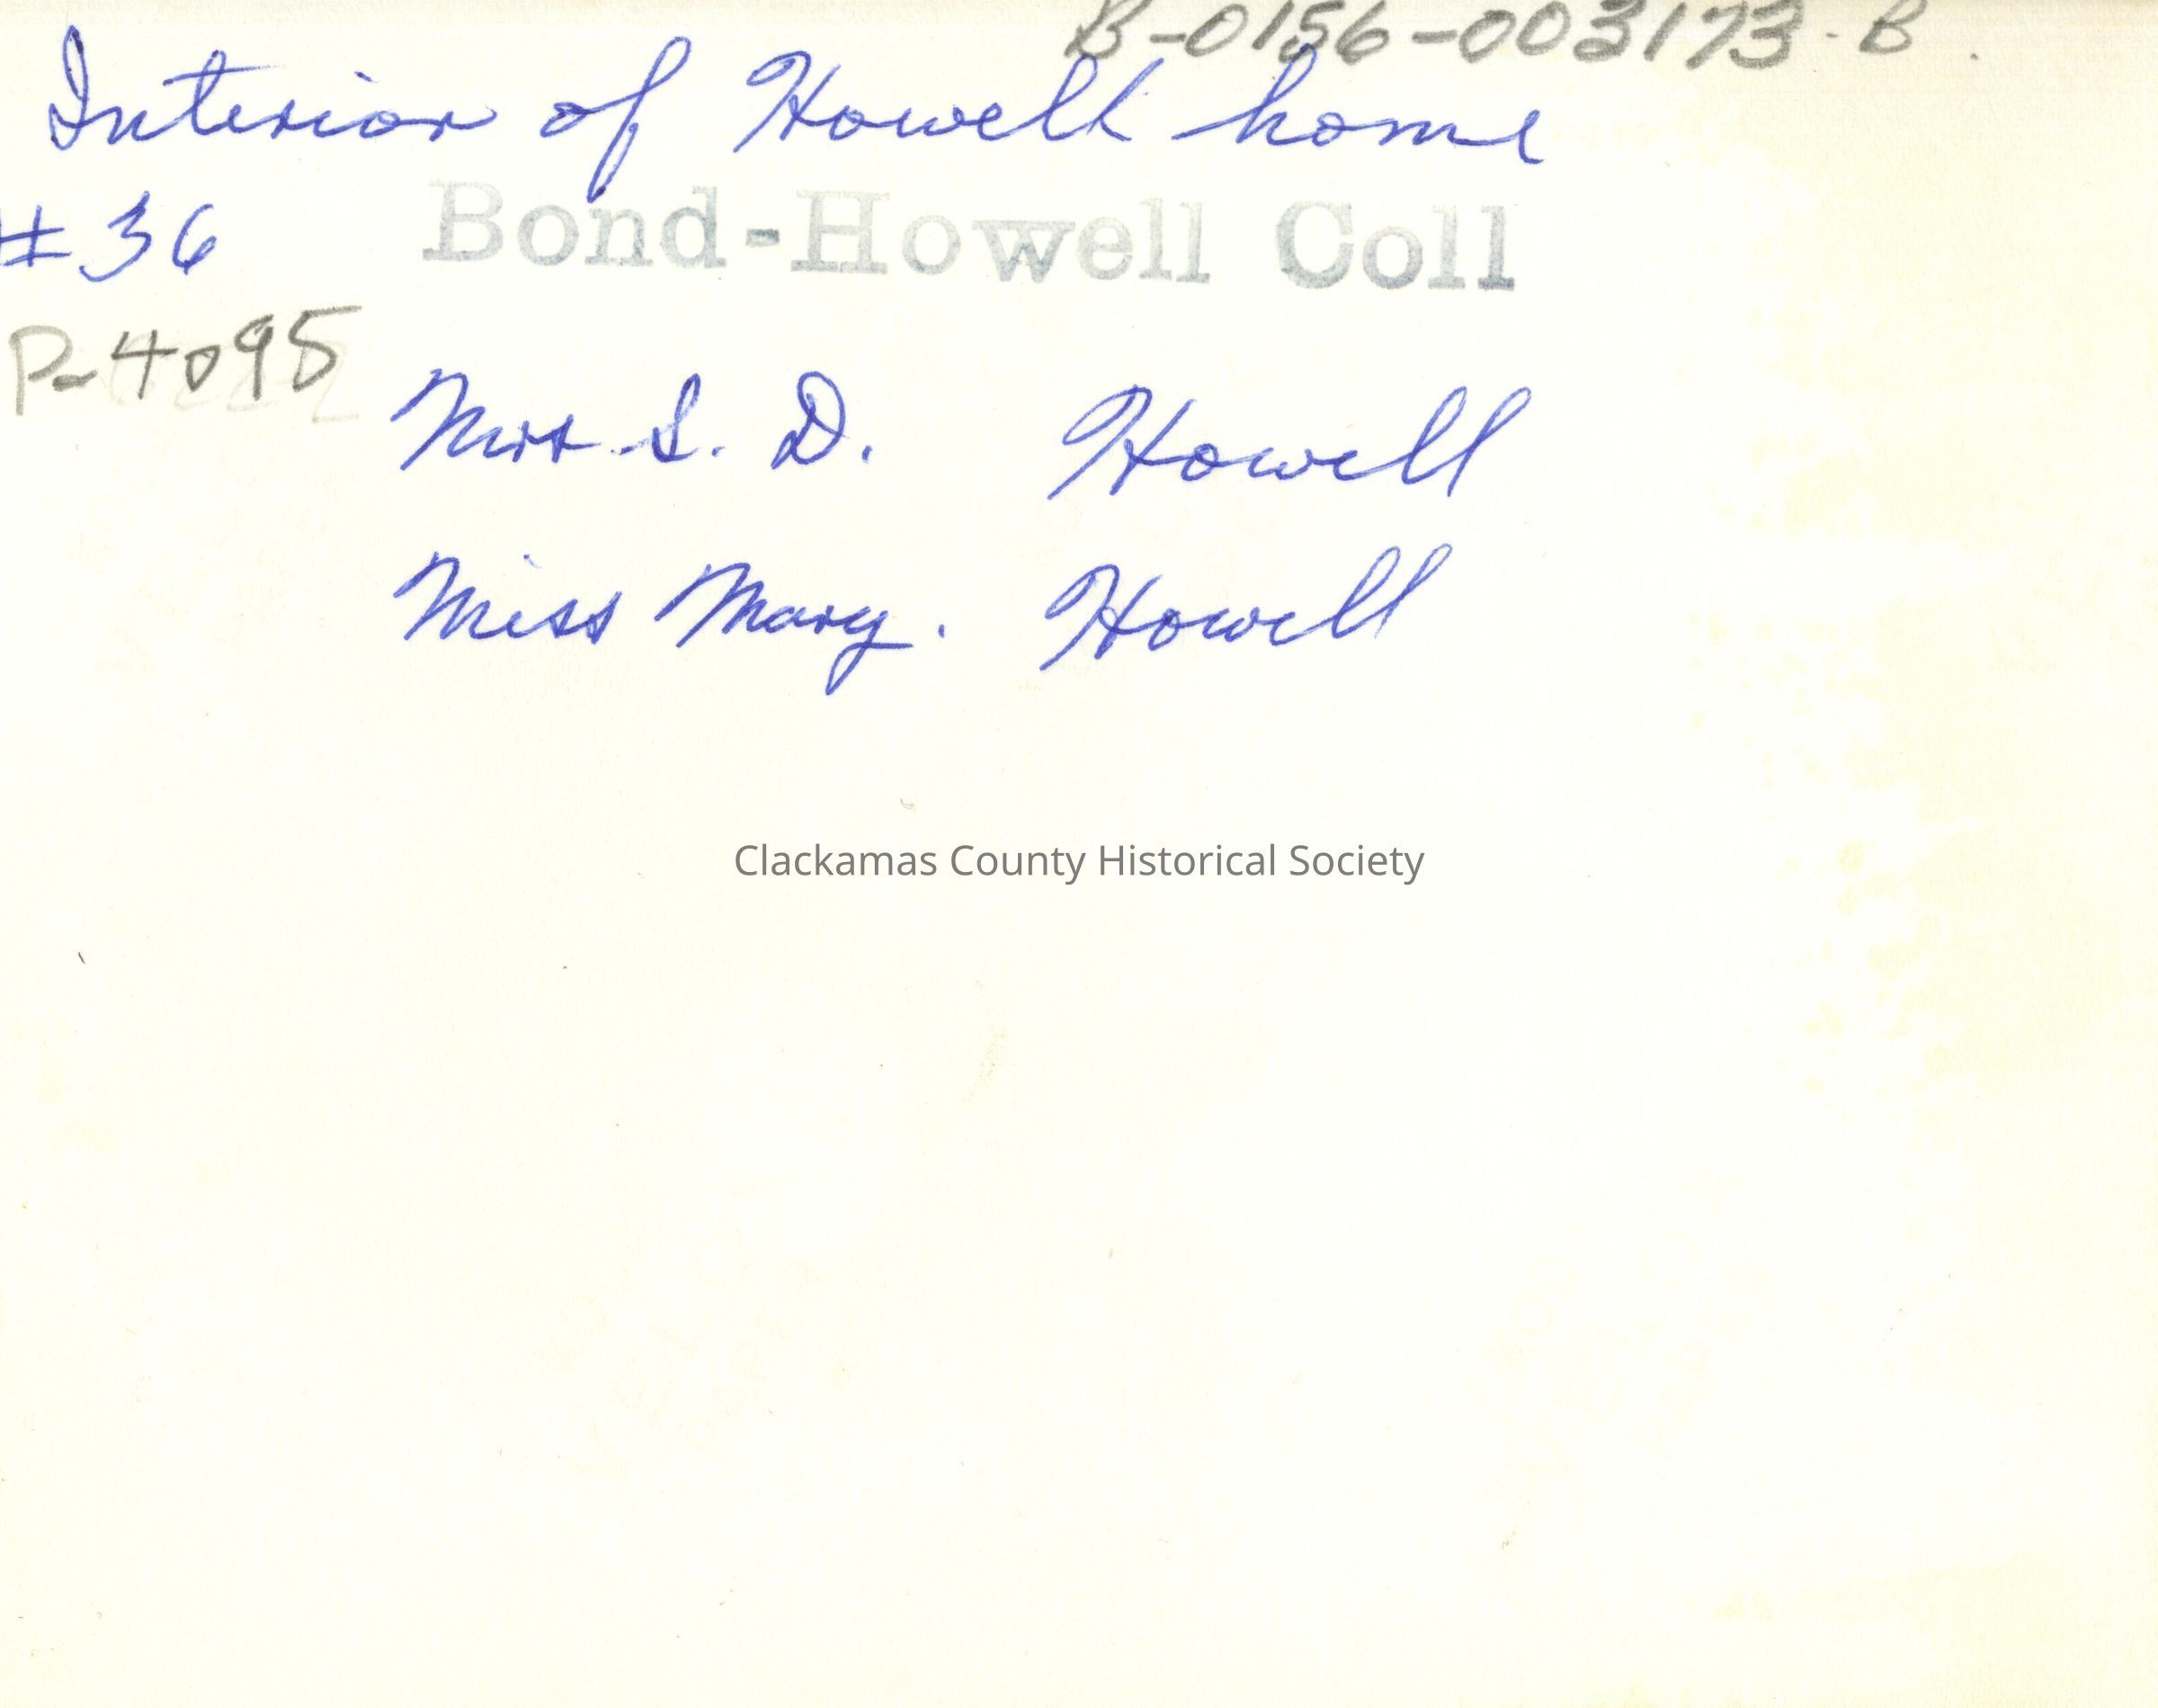 B-0156-003173-B.
Interior of Howell home
#36 Bond-Howell Coll
P-4095
Mrs S. D. Howell
Miss Mary. Howell
Clackamas County Historical Society